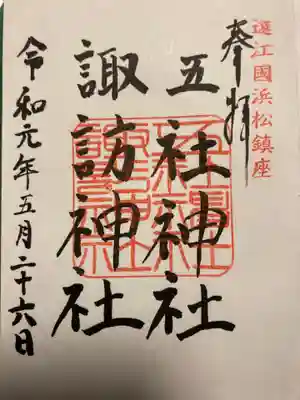 遠江國浜松鎮座
奉拝
五社神社
諏訪神社
令和元年五月二十六日